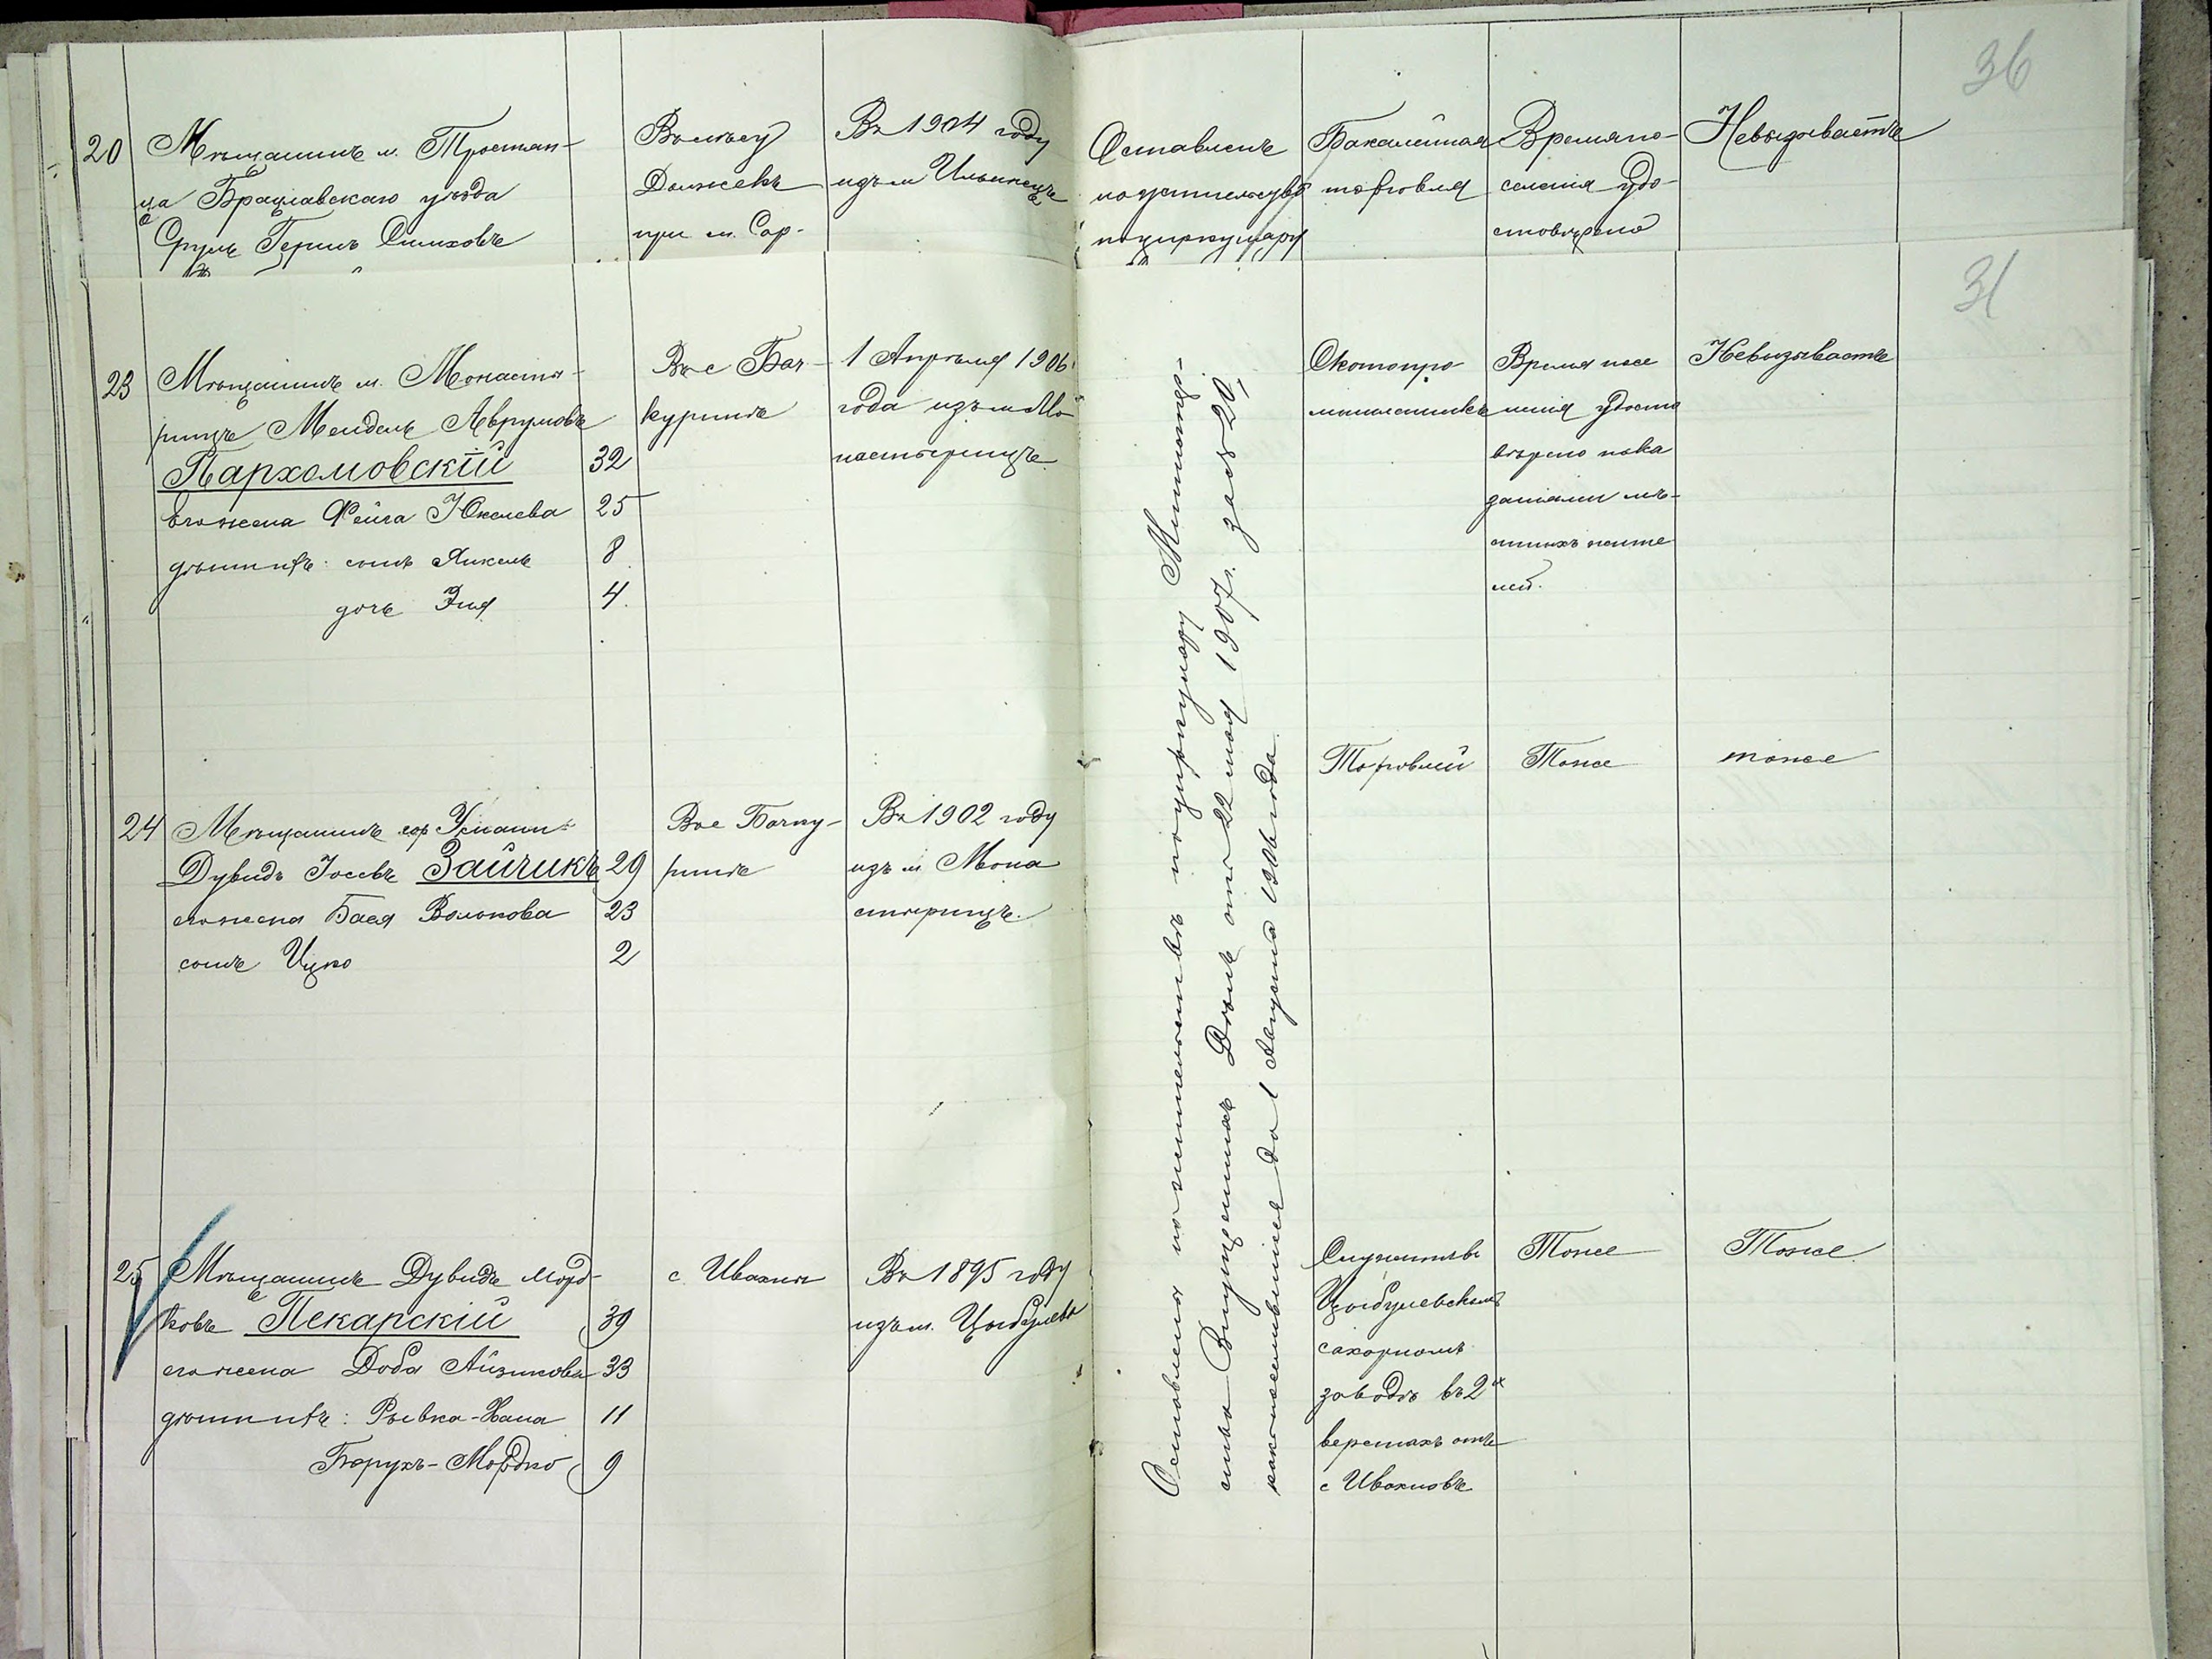 36
20 Мѣщанинъ м. Тростян-
ца Брацлавскаго уѣзда
Сруль Гершъ Сминховъ
Въ лѣсу
Должекъ
при м. Сар-
Въ 1904 году
изъ м Ильинецъ
Оставленъ
на жительствѣ
по циркуляру
Бакалейная
торговля
Время по-
селенія удо-
стовѣрено
Невызываетъ
31
23 Мѣщанинъ м. Монасты-
рищъ Мендель Аврумовъ
Пархомовскій 32
его жена Фейга Юкелева 25
дѣти ихъ: сынъ Янкель 8
дочь Эня 4.
Въ с Бач-
куринѣ
1 Апрѣля 1906
года изъ м Мо-
настырищъ
Оставлены на жительствѣ по циркуляру Министер-
ства Внутреннихъ Дѣлъ отъ 22 мая 1907 г. за № 20,
какъ поселившіеся до 1 Августа 1906 года.
Скотопро
мышленникъ
Время посе
ленія удосто
вѣрено пока
заніями мѣ-
стныхъ жите
лей.
Невызываетъ
24 Мѣщанинъ гор Умани
Дувидъ Іосевъ Зайчикъ 29
его жена Бася Волькова 23
сынъ Ицко 2
Въ с Бачку-
ринѣ
Въ 1902 году
изъ м Мона
стырищъ.
Торговлей
Тоже
тоже
25 Мѣщанинъ Дувидъ Морд-
ковъ Пекарскій 39
его жена Доба Айзикова 33
дѣти ихъ: Рывка-Хана 11
Борухъ-Мордко 9
с Ивахны
Въ 1895 году
изъ м. Цыбулева
Служитъ въ
Цыбулевскомъ
сахарномъ
заводѣ въ 2х
верстахъ отъ
с Ивахновъ
Тоже
Тоже